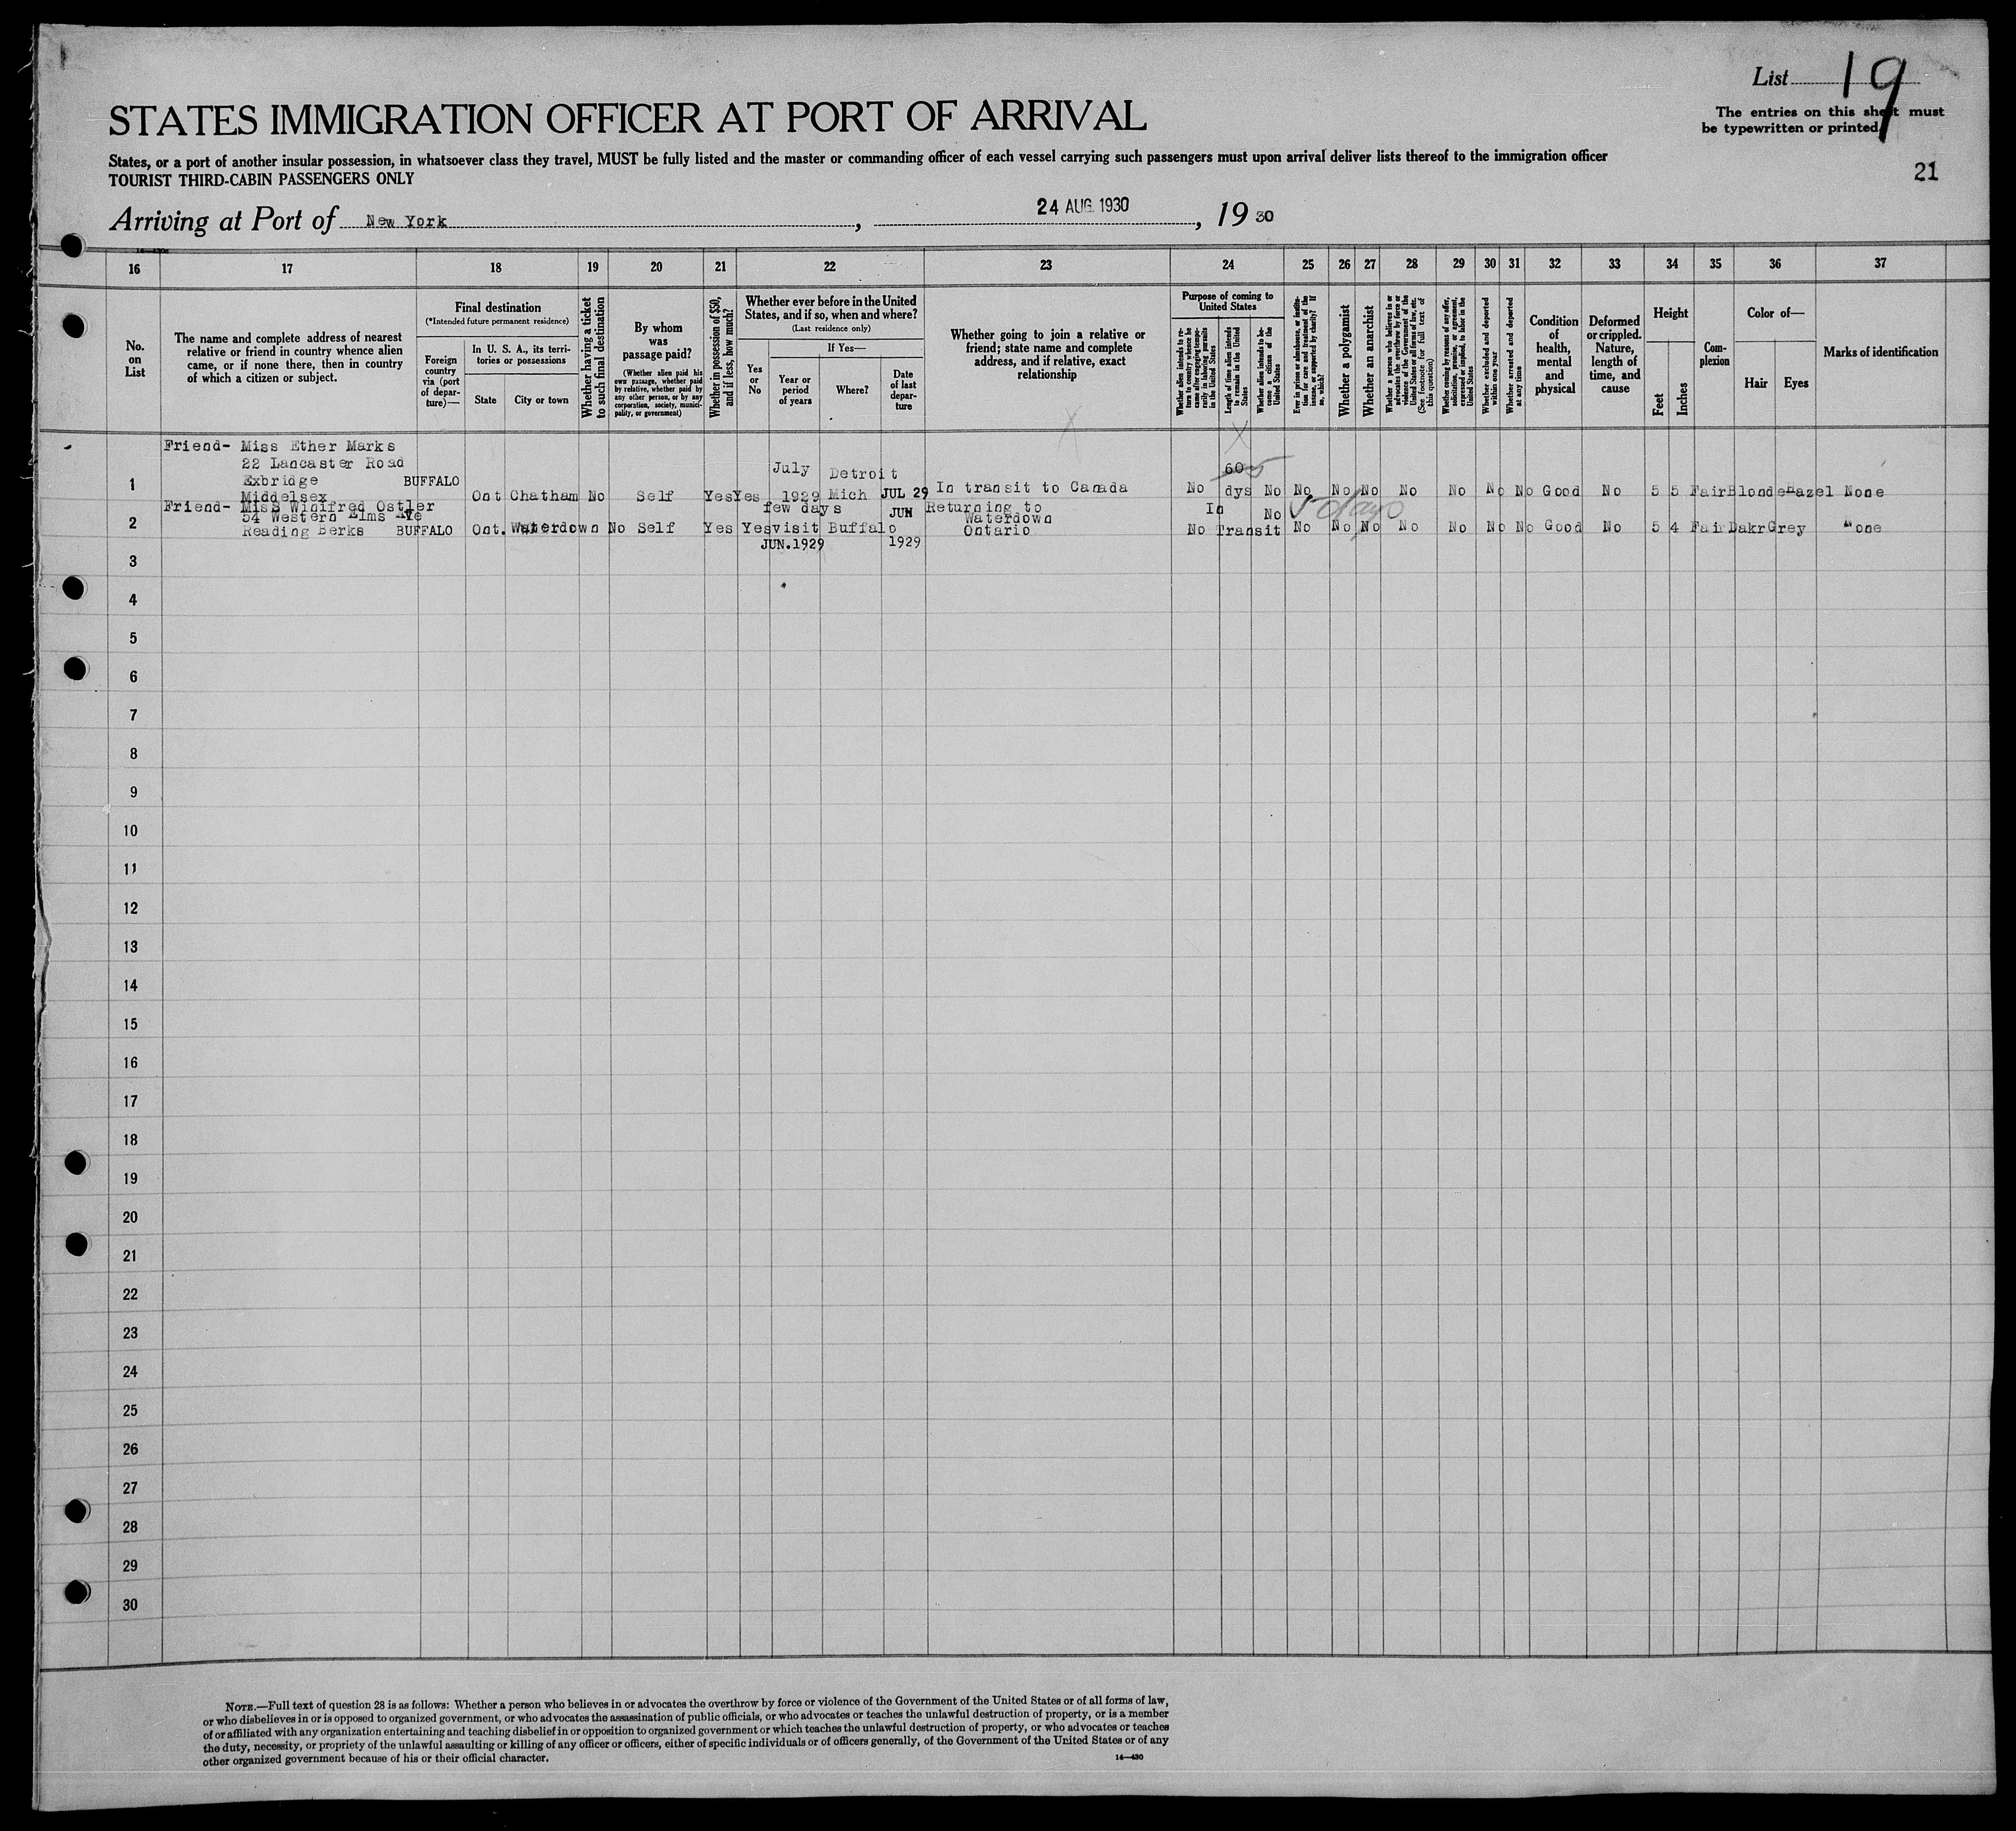 List 19
STATES IMMIGRATION OFFICER AT PORT OF ARRIVAL
The entries on this sheet must
be typewritten or printed
States, or a port of another insular possession, in whatsoever class they travel, MUST be fully listed and the master or commanding officer of each vessel carrying such passengers must upon arrival deliver lists thereof to the immigration officer
TOURIST THIRD-CABIN PASSENGERS ONLY
21
Arriving at Port of New York, 24 AUG. 1930, 19 30
16 17 18 19 20 21 22 23 24 25 26 27 28 29 30 31 32 33 34 35 36 37
No.
on
List
The name and complete address of nearest
relative or friend in country whence alien
came, or if none there, then in country
of which a citizen or subject.
Final destination
(*Intended future permanent residence)
Foreign
country
via (port
of depar-
ture)—
In U. S. A., its terri-
tories or possessions
State
City or town
Whether having a ticket
to such final destination
By whom
was
passage paid?
(Whether alien paid his
own passage, whether paid
by relative, whether paid by
any other person, or by any
corporation, society, munici-
pality, or government)
Whether in possession of $50,
and if less, how much?
Whether ever before in the United
States, and if so, when and where?
(Last residence only)
Yes
or
No
If Yes—
Year or
period
of years
Where?
Date
of last
depar-
ture
Whether going to join a relative or
friend; state name and complete
address, and if relative, exact
relationship
Purpose of coming to
United States
Whether alien intends to re-
turn to country whence he
came after engaging tempo-
rarily in laboring pursuits
in the United States
Length of time alien intends
to remain in the United
States
Whether alien intends to be-
come a citizen of the
United States
Ever in prison or almshouse, or institu-
tion for care and treatment of the
insane, or supported by charity? If
so, which?
Whether a polygamist
Whether an anarchist
Whether a person who believes in or
advocates the overthrow by force or
violence of the Government of the
United States or all forms of law, etc.
(See footnote for full text of
this question)
Whether coming by reason of any offer,
solicitation, promise, or agreement,
expressed or implied, to labor in the
United States
Whether excluded and deported
within one year
Whether arrested and deported
at any time
Condition
of
health,
mental
and
physical
Deformed
or crippled.
Nature,
length of
time, and
cause
Height
Feet
Inches
Com-
plexion
Color of—
Hair
Eyes
Marks of identification
Friend- Miss Ether Marks
22 Lancaster Road
Exbridge BUFFALO
Middelsex
1 Ont Chatham No Self Yes Yes July 1929 Detroit Mich JUL 29 In transit to Canada No 60 dys No No No No No No No No Good No 5 5 Fair Blonde Hazel None
Friend- Miss Winifred Ostler
54 Western Elms Ave
Reading Berks BUFFALO
2 Ont. Waterdown No Self Yes Yes few days visit JUN.1929 Buffalo JUN 1929 Returning to
Waterdown
Ontario
No In Transit No 5 days No No No No No No No Good No 5 4 Fair Dakr Grey None
3
4
5
6
7
8
9
10
11
12
13
14
15
16
17
18
19
20
21
22
23
24
25
26
27
28
29
30
NOTE.—Full text of question 28 is as follows: Whether a person who believes in or advocates the overthrow by force or violence of the Government of the United States or of all forms of law,
or who disbelieves in or is opposed to organized government, or who advocates the assassination of public officials, or who advocates or teaches the unlawful destruction of property, or is a member
of or affiliated with any organization entertaining and teaching disbelief in or opposition to organized government or which teaches the unlawful destruction of property, or who advocates or teaches
the duty, necessity, or propriety of the unlawful assaulting or killing of any officer or officers, either of specific individuals or of officers generally, of the Government of the United States or of any
other organized government because of his or their official character.
14—430